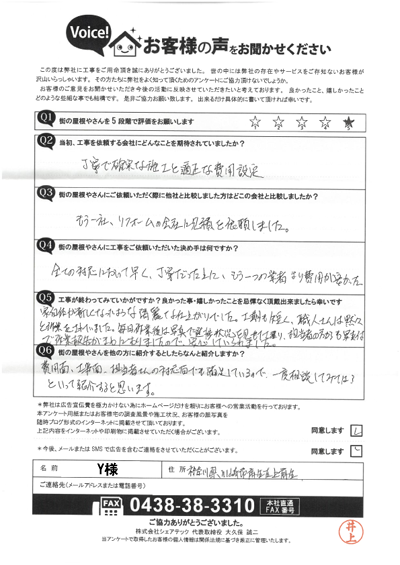 Voice!
お客様の声をお聞かせください
この度は弊社に工事をご用命頂き誠にありがとうございました。世の中には弊社の存在やサービスをご存知ないお客様が
沢山いらっしゃいます。その方たちに弊社をよく知って頂くためのアンケートにご協力頂けないでしょうか。
お客様のご意見をお聞かせいただき今後の活動に反映させていただきたいと考えております。良かったこと、嬉しかったこと
どのような些細な事でも結構です。是非ご協力お願い致します。出来るだけ具体的に書いて頂ければ幸いです。
Q1 街の屋根やさんを5段階で評価をお願いします ☆ ☆ ☆ ☆ ★
Q2 当初、工事を依頼する会社にどんなことを期待されていましたか?
丁寧で確実な施工と適正な費用設定
Q3 街の屋根やさんにご依頼いただく際に他社と比較しました方はどこの会社と比較しましたか?
もう一社、リフォームの会社に見積を依頼しました。
Q4 街の屋根やさんに工事をご依頼いただいた決め手は何ですか?
全ての対応において早く、丁寧だった上に、もう一つの業者より費用が安かった
Q5 工事が終わってみていかがですか?良かった事・嬉しかったことを忌憚なく頂戴出来ましたら幸いです
Q6 街の屋根やさんを他の方に紹介するとしたらなんと紹介しますか?
費用面、工事面、担当者さんの対応面でも満足しているので、一度相談してみては?
といって紹介すると思います。
※弊社は広告宣伝費を極力かけない為にホームページだけを頼りにお客様への営業活動を行っております。
本アンケート用紙またはお客様宅の調査風景や施工状況、お客様の直写真を
随時ブログ形式のインターネットに掲載させて頂いております。
上記内容をインターネットや印刷物に掲載させていただく場合がございます。
同意します
※今後、メールまたはSMSで広告を含むご連絡をさせていただくことがございます。
同意します
名前 Y様 住所
ご連絡先(メールアドレスまたは電話番号)
FAX 0438-38-3310 本社直通 FAX番号
ご協力ありがとうございました。
株式会社シェアテック 代表取締役 大久保 誠二
当アンケートで取得したお客様の個人情報は関係法規に基づき厳正に管理いたします。
井上